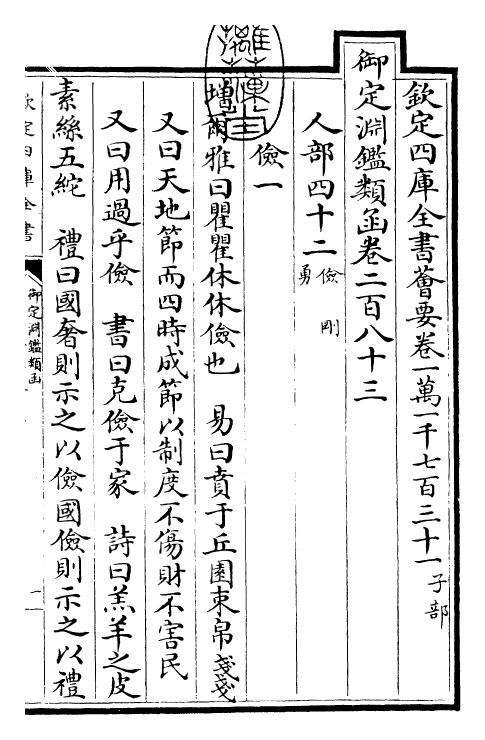 欽定四庫全書薈要卷一萬一千七百三十一子部
御定淵鑑類函卷二百八十三
人部四十二 儉 剛 勇
儉一
增爾雅曰瞿瞿休休儉也 易曰賁于丘園束帛戔戔
又曰天地節而四時成節以制度不傷財不害民
又曰用過乎儉 書曰克儉于家 詩曰羔羊之皮
素絲五紽 禮曰國奢則示之以儉國儉則示之以禮
欽定四庫全書
御定淵鑑類函
一